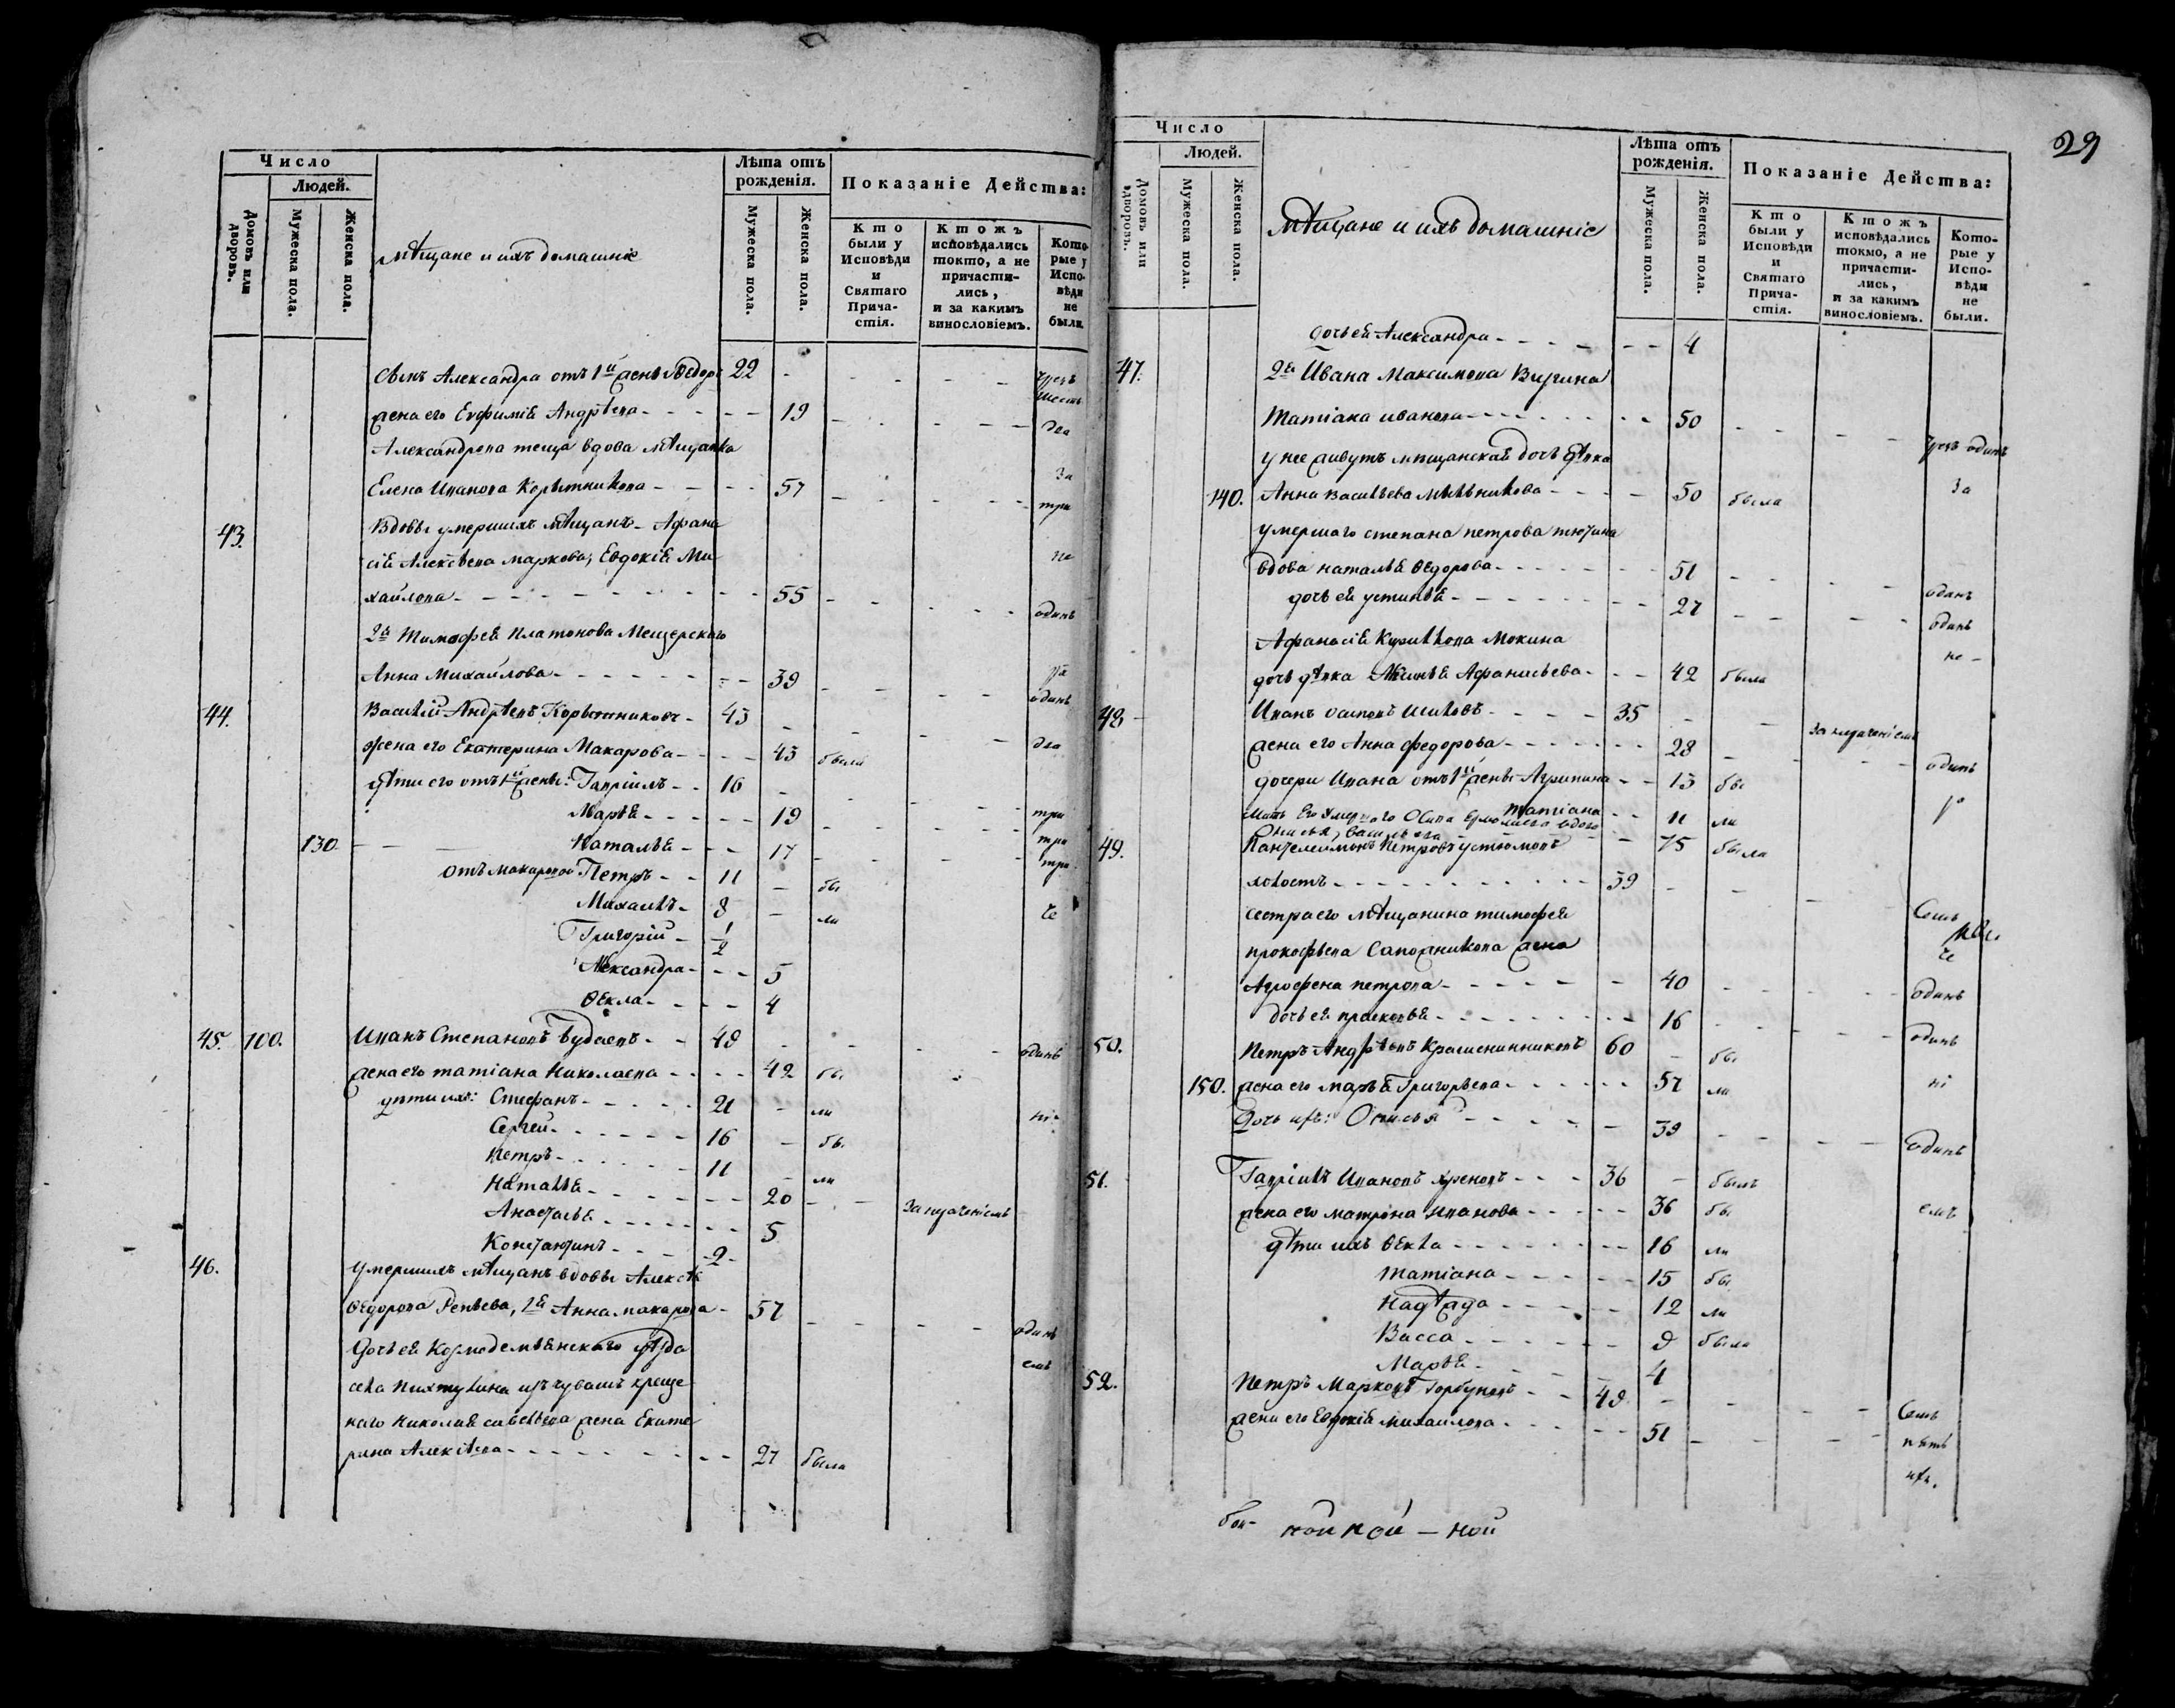 Число
Людей.
Домовъ или дворовъ.
Мужеска пола.
Женска пола.
мѣщане и ихъ домашніе
Лѣта отъ рожденія.
Мужеска пола.
Женска пола.
Показаніе Действа:
Кто были у Исповѣди и Святаго Прича-стія.
Ктожъ исповѣдались токмо, а не причасти-лись, и за какимъ винословіемъ.
Кото-рые у Испо-вѣди не были.
Сынъ Александра отъ 1й жены Ѳедоръ 22
жена его Евфимія Андрѣева 19 два
Александрова теща вдова мѣщанка
Елена Иванова Корытникова 57 три
43. Вдовы умершихъ мѣщанъ Афана
сія Алексѣева Маркова, Евдокія Ми
хайлова 55 одинъ
2я Тимофея Платонова Мещерскаго
Анна Михайлова 39 одинъ
44. Василій Андрѣевъ Корытниковъ 43 два
жена его Екатерина Макарова 43 была
дѣти его отъ 1й жены: Гавріилъ 16 три
Марья 19 три
130. Наталья 17 три
отъ Макаровой Петръ 11 бы
Михаилъ 8 ли
Григорій 1/2
Александра 5
Ѳекла 4
45. 100. Иванъ Степановъ Будаевъ 49 одинъ
жена его татіана Николаева 42 бы
дѣти ихъ: Стефанъ 21 ли
Сергей 16 бы
Петръ 11 ли
Наталья 20
Анастасья 5
Константинъ 2
46. умершихъ мѣщанъ вдовы Алексѣя
Ѳедорова Репьева, 1я Анна макарова 57 одинъ
Дочь ея Козмодемьянскаго уѣзда
села Пихтулина изъ чувашъ креще
наго Николая савельева жена Екате
рина Алексѣева 27 была
29
Число
Людей.
Домовъ или дворовъ.
Мужеска пола.
Женска пола.
мѣщане и ихъ домашніе
Лѣта отъ рожденія.
Мужеска пола.
Женска пола.
Показаніе Действа:
Кто были у Исповѣди и Святаго Прича-стія.
Ктожъ исповѣдались токмо, а не причасти-лись, и за какимъ винословіемъ.
Кото-рые у Испо-вѣди не были.
дочь ея Александра 4
47. 2я Ивана Максимова
Татіана иванова 50
у нее живутъ мѣщанская дочь дѣвка
140. Анна Васильева Мѣльникова 50 была
умершаго степана петрова
вдова наталья Ѳедорова 51 одинъ
дочь ея устинья 27 одинъ
Афанасія Кирилова Мокина
дочь дѣвка Афанасьева 42 была
48 Иванъ Осиповъ Шиловъ 35
жена его Анна федорова 28 одинъ
дочери Ивана отъ 1й жены Агрипина 13 бы
Татіана 11 ли
Мать Его Умершаго Осипа Ермолаева вдова
Васильева 75 была
49. Пантелеимонъ Петровъ
холостъ 39
сестра его мѣщанина тимофея
прокофьева Сапожникова жена
Агрофена петрова 40 одинъ
дочь ея прасковья 16 одинъ
50. Петръ Андрѣевъ Крашенинниковъ 60 бы
150. жена его марья Григорьева 57 ли
Дочь ихъ: Онисья 39 одинъ
51. Гавріилъ Ивановъ Хреновъ 36 былъ
жена его матрона иванова 36 бы
дѣти ихъ Ѳекла 16 ли
татіана 15 бы
Надѣжда 12 ли
Васса 9 была
Марья 4
52. Петръ Марковъ Горбуновъ 49
жена его Евдокія михайлова 51 пять